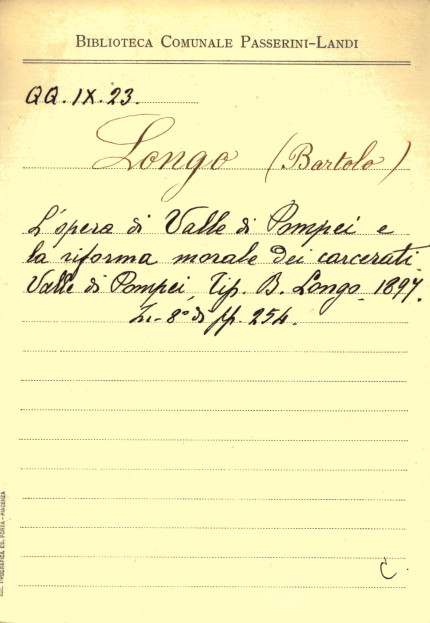 BIBLIOTECA COMUNALE PASSERINI-LANDI
QQ. IX. 23.
Longo (Bartolo)
L'opera di Valle di Pompei e
la riforma morale dei carcerati.
Valle di Pompei, Tip. B. Longo, 1897.
In-8° di pp. 254.
C